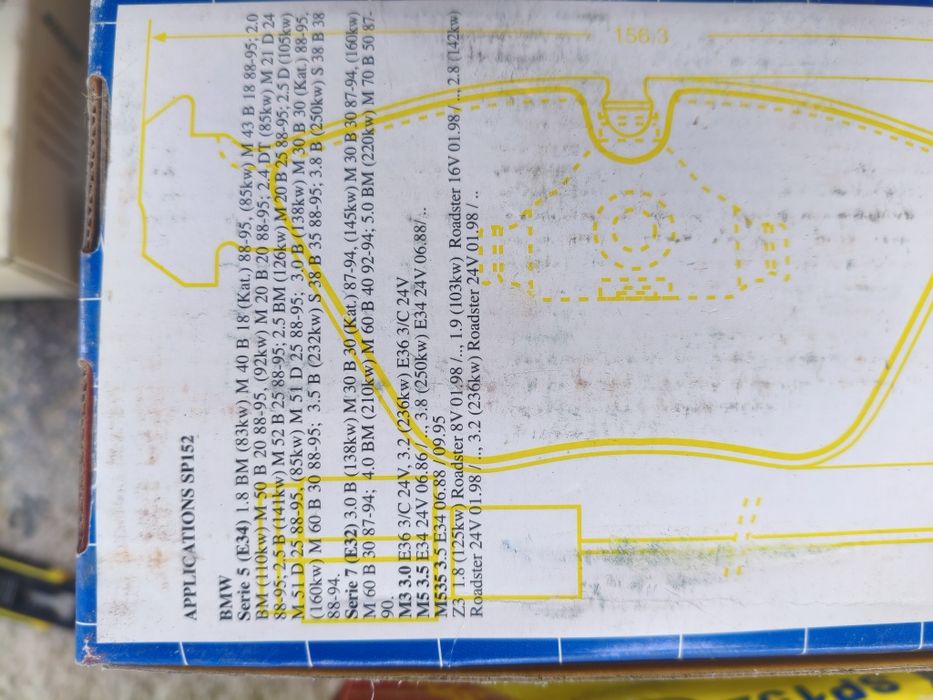 APPLICATIONS SP152
BMW
Serie 5 (E34) 1.8 BM (83kw) M 40 B 18 (Kat.) 88-95, (85kw) M 43 B 18 88-95; 2.0
BM (110kw) M 50 B 20 88-95, (92kw) M 20 B 20 88-95; 2.4 DT (85kw) M 21 D 24
88-95; 2.5 B (141kw) M 52 B 25 88-95; 2.5 BM (126kw) M 20 B 25 88-95; 2.5 D (105kw)
M 51 D 25 88-95, (85kw) M 51 D 25 88-95; 3.0 B (138kw) M 30 B 30 (Kat.) 88-95,
(160kw) M 60 B 30 88-95; 3.5 B (232kw) S 38 B 35 88-95; 3.8 B (250kw) S 38 B 38
88-94,
Serie 7 (E32) 3.0 B (138kw) M 30 B 30 (Kat.) 87-94, (145kw) M 30 B 30 87-94, (160kw)
M 60 B 30 87-94; 4.0 BM (210kw) M 60 B 40 92-94; 5.0 BM (220kw) M 70 B 50 87-
90,
M3 3.0 E36 3/C 24V, 3.2 (236kw) E36 3/C 24V
M5 3.5 E34 24V 06.86 / .., 3.8 (250kw) E34 24V 06.88/ ..
M535 3.5 E34 06.88 / 09.95
Z3 1.8 (125kw) Roadster 8V 01.98 /... 1.9 (103kw) Roadster 16V 01.98 / ... 2.8 (142kw)
Roadster 24V 01.98 / .., 3.2 (236kw) Roadster 24V 01.98 / ..
156.3